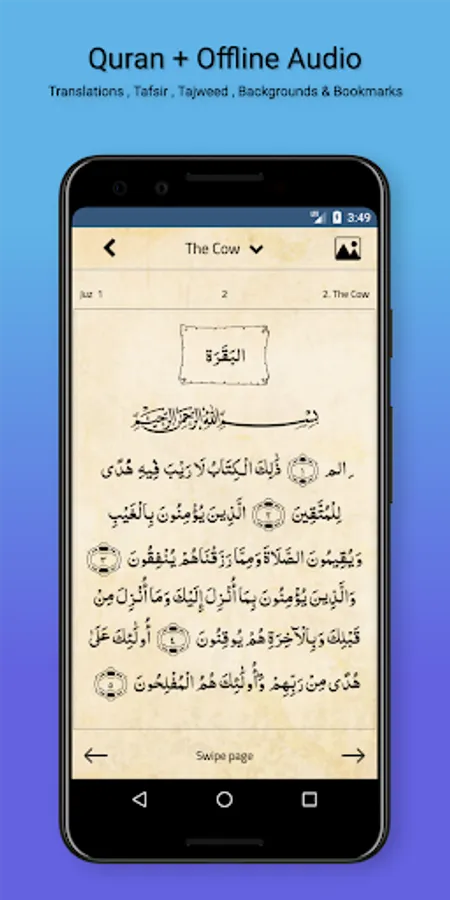 Quran + Offline Audio
Translations , Tafsir , Tajweed , Backgrounds & Bookmarks
3:49
The Cow
Juz 1 2 2. The Cow
البَقَرَة
بِسْمِ اللهِ الرَّحْمَنِ الرَّحِيْمِ
الم ١ ذَٰلِكَ الْكِتَابُ لَا رَيْبَ فِيهِ هُدًى
لِلْمُتَّقِينَ ٢ الَّذِينَ يُؤْمِنُونَ بِالْغَيْبِ
وَيُقِيمُونَ الصَّلَاةَ وَمِمَّا رَزَقْنَاهُمْ يُنْفِقُونَ ٣
وَالَّذِينَ يُؤْمِنُونَ بِمَا أُنْزِلَ إِلَيْكَ وَمَا أُنْزِلَ مِنْ
قَبْلِكَ وَبِالْآخِرَةِ هُمْ يُوقِنُونَ ٤ أُولَٰئِكَ عَلَىٰ
هُدًى مِنْ رَبِّهِمْ وَأُولَٰئِكَ هُمُ الْمُفْلِحُونَ ٥
Swipe page